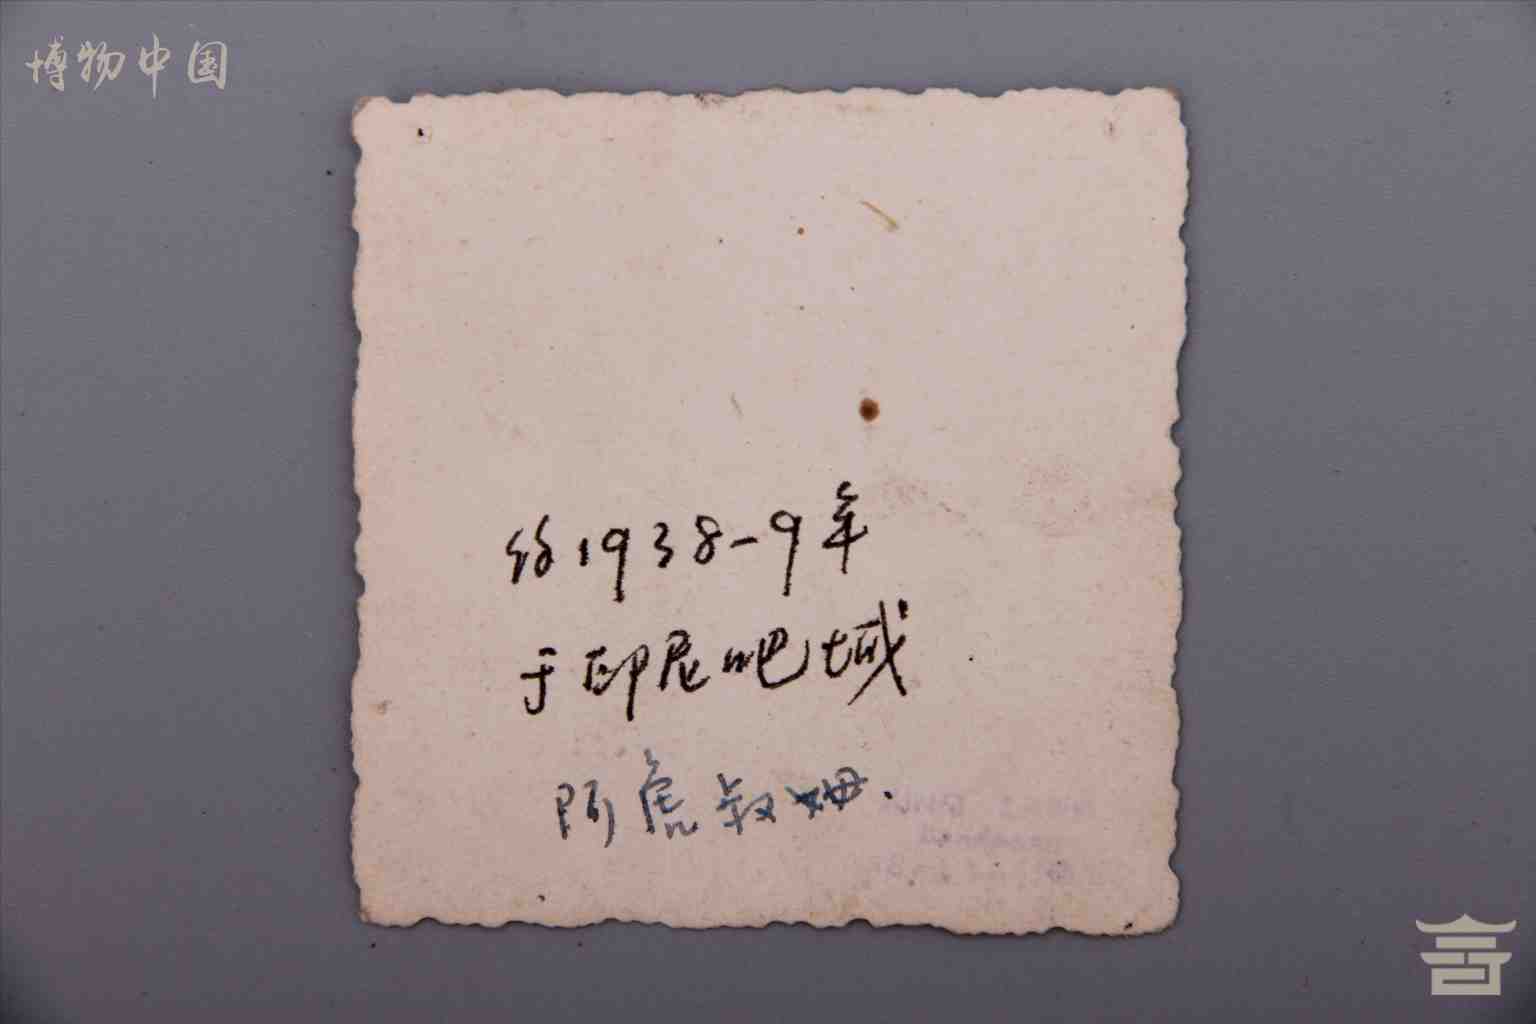 博物中国
约1938-9年
于印尼吧城
阿虎叔姆.